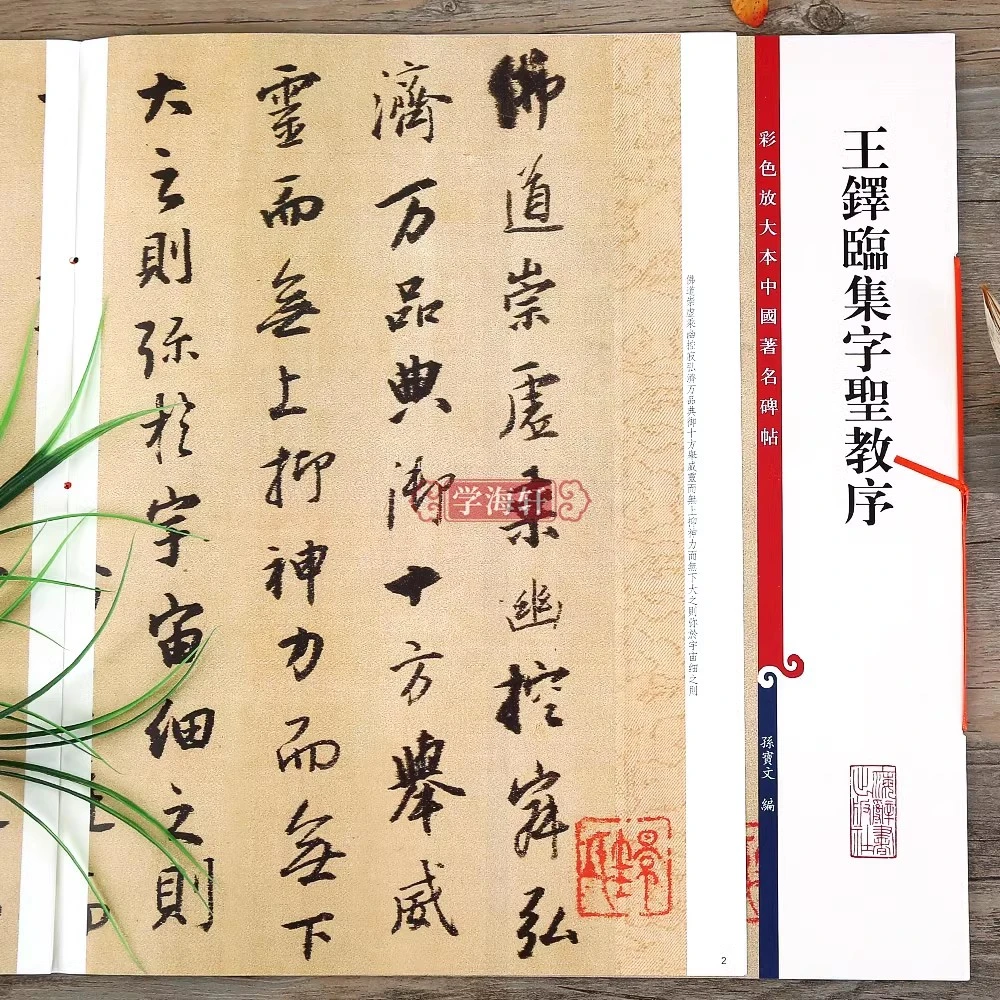 王鐸臨集字聖教序
彩色放大本中國著名碑帖
孫寶文 編
佛道崇虛乘幽控寂弘濟万品典御十方舉威靈而無上抑神力而無下大之則弥於宇宙細之則
佛道崇虛乘幽控寂弘
濟万品典御十方舉威
靈而無上抑神力而無下
大之則弥於宇宙細之則
学海轩
2